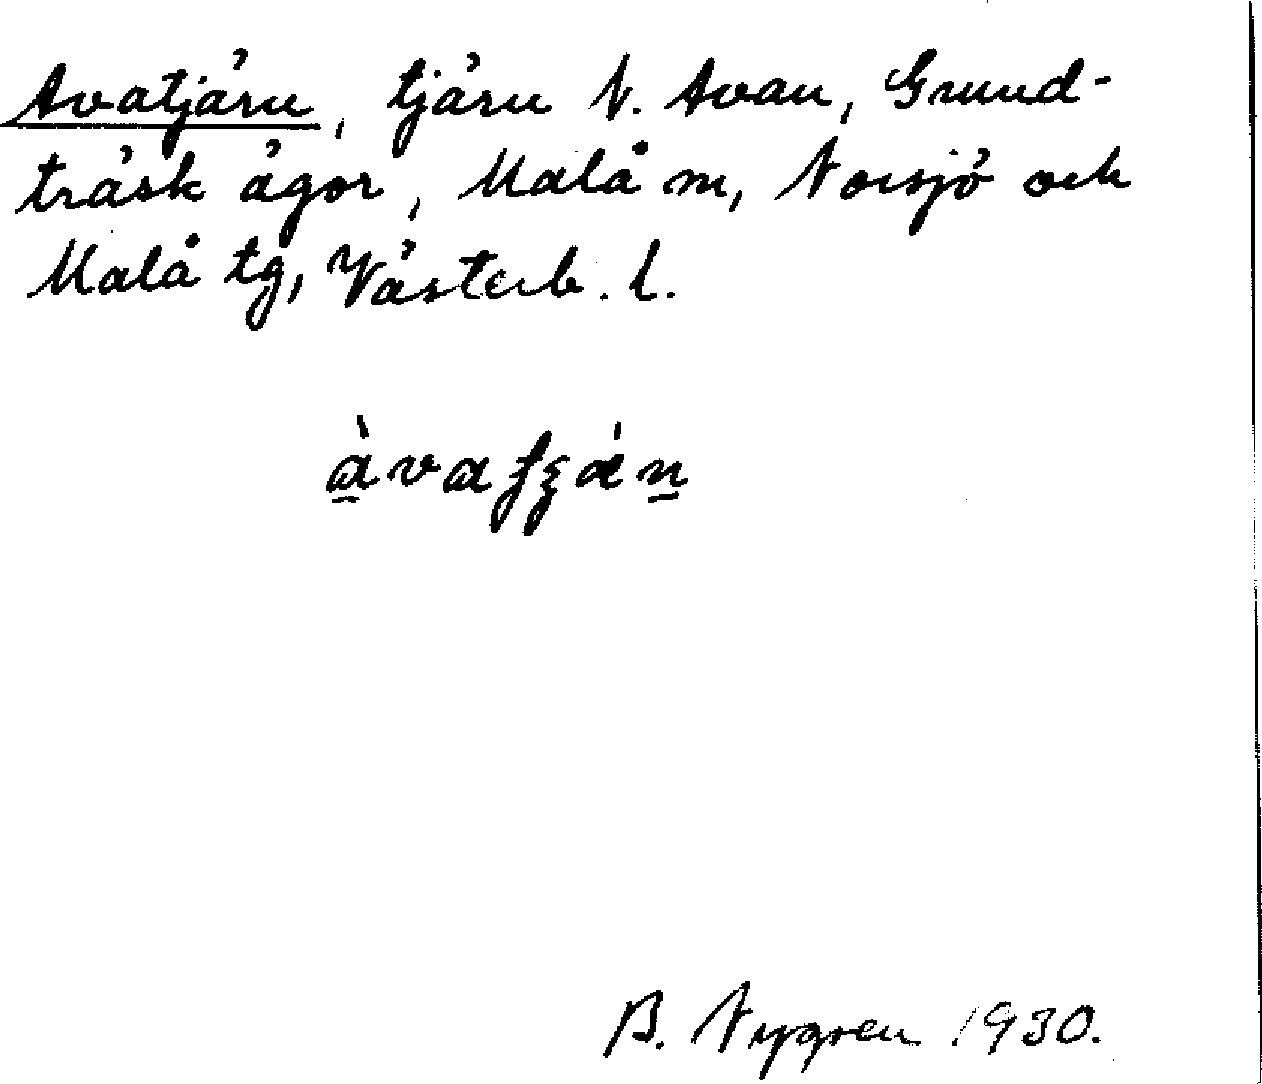 Avatjärn, tjärn N. Avan, Grund-
träsk ägor, Malå sn, Norsjö och
Malå tg, Västerb. l.
B. Nygren 1930.